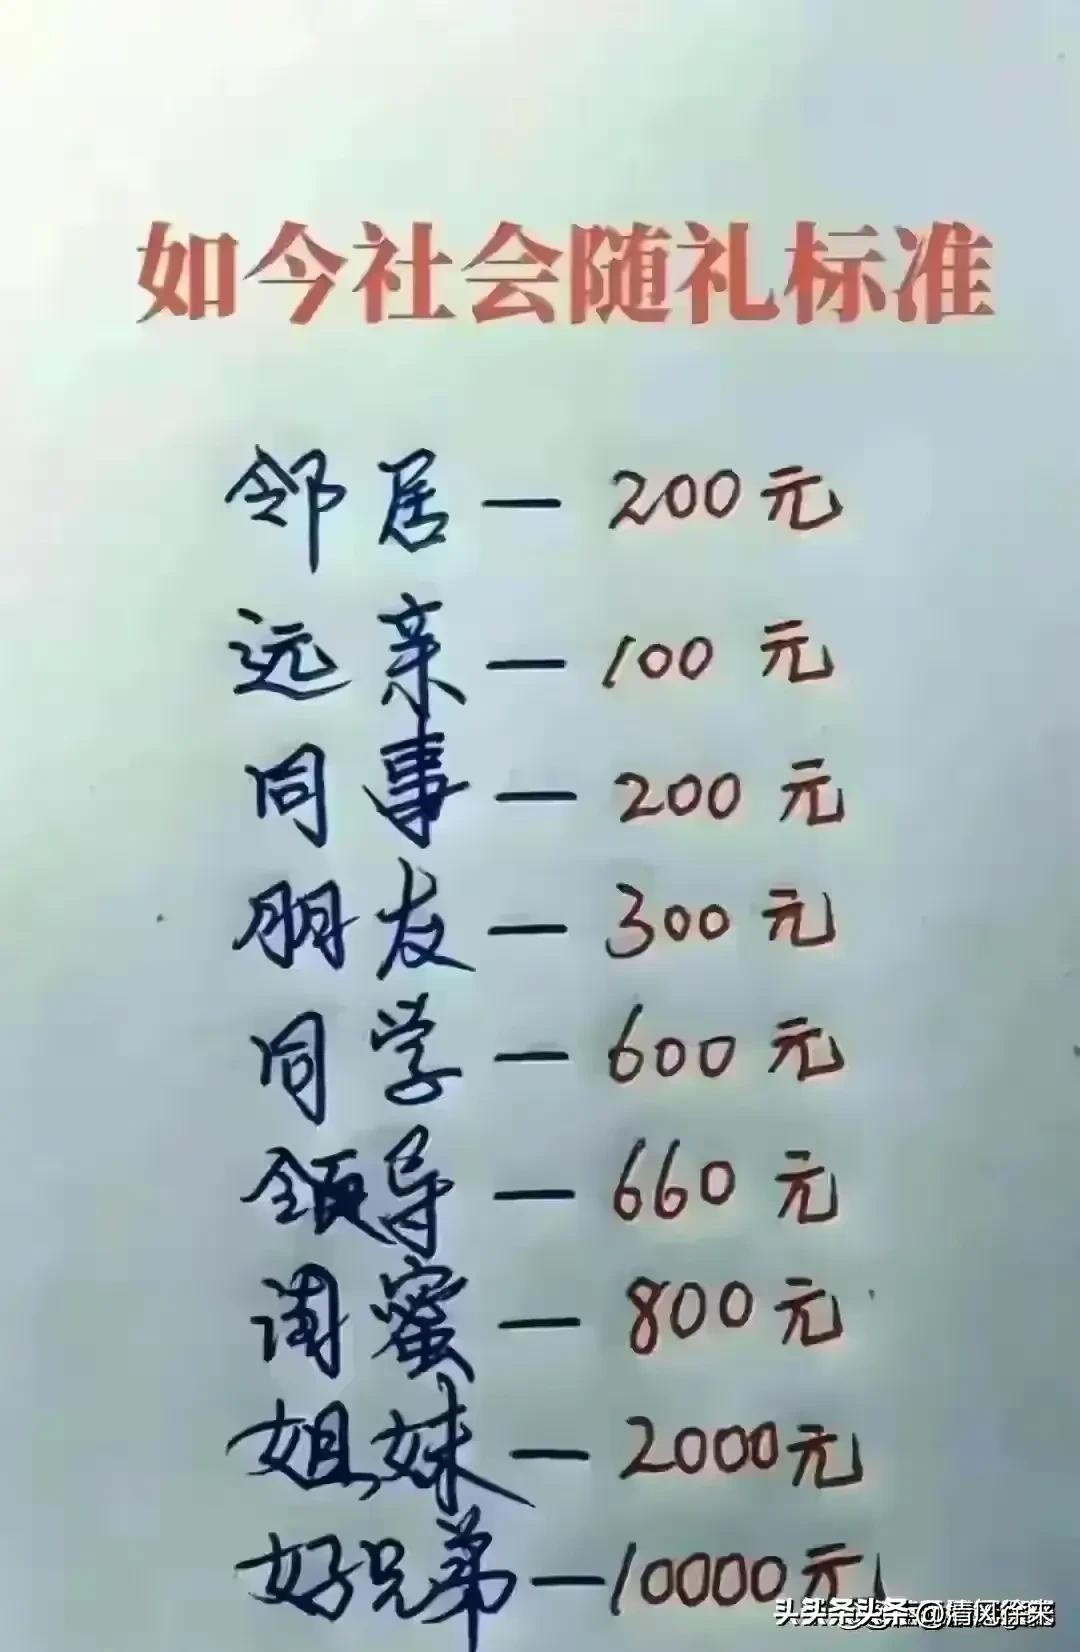 如今社会随礼标准
邻居—200元
远亲—100元
同事—200元
朋友—300元
同学—600元
领导—660元
闺蜜—800元
姐妹—2000元
好兄弟—10000元
@清风徐来